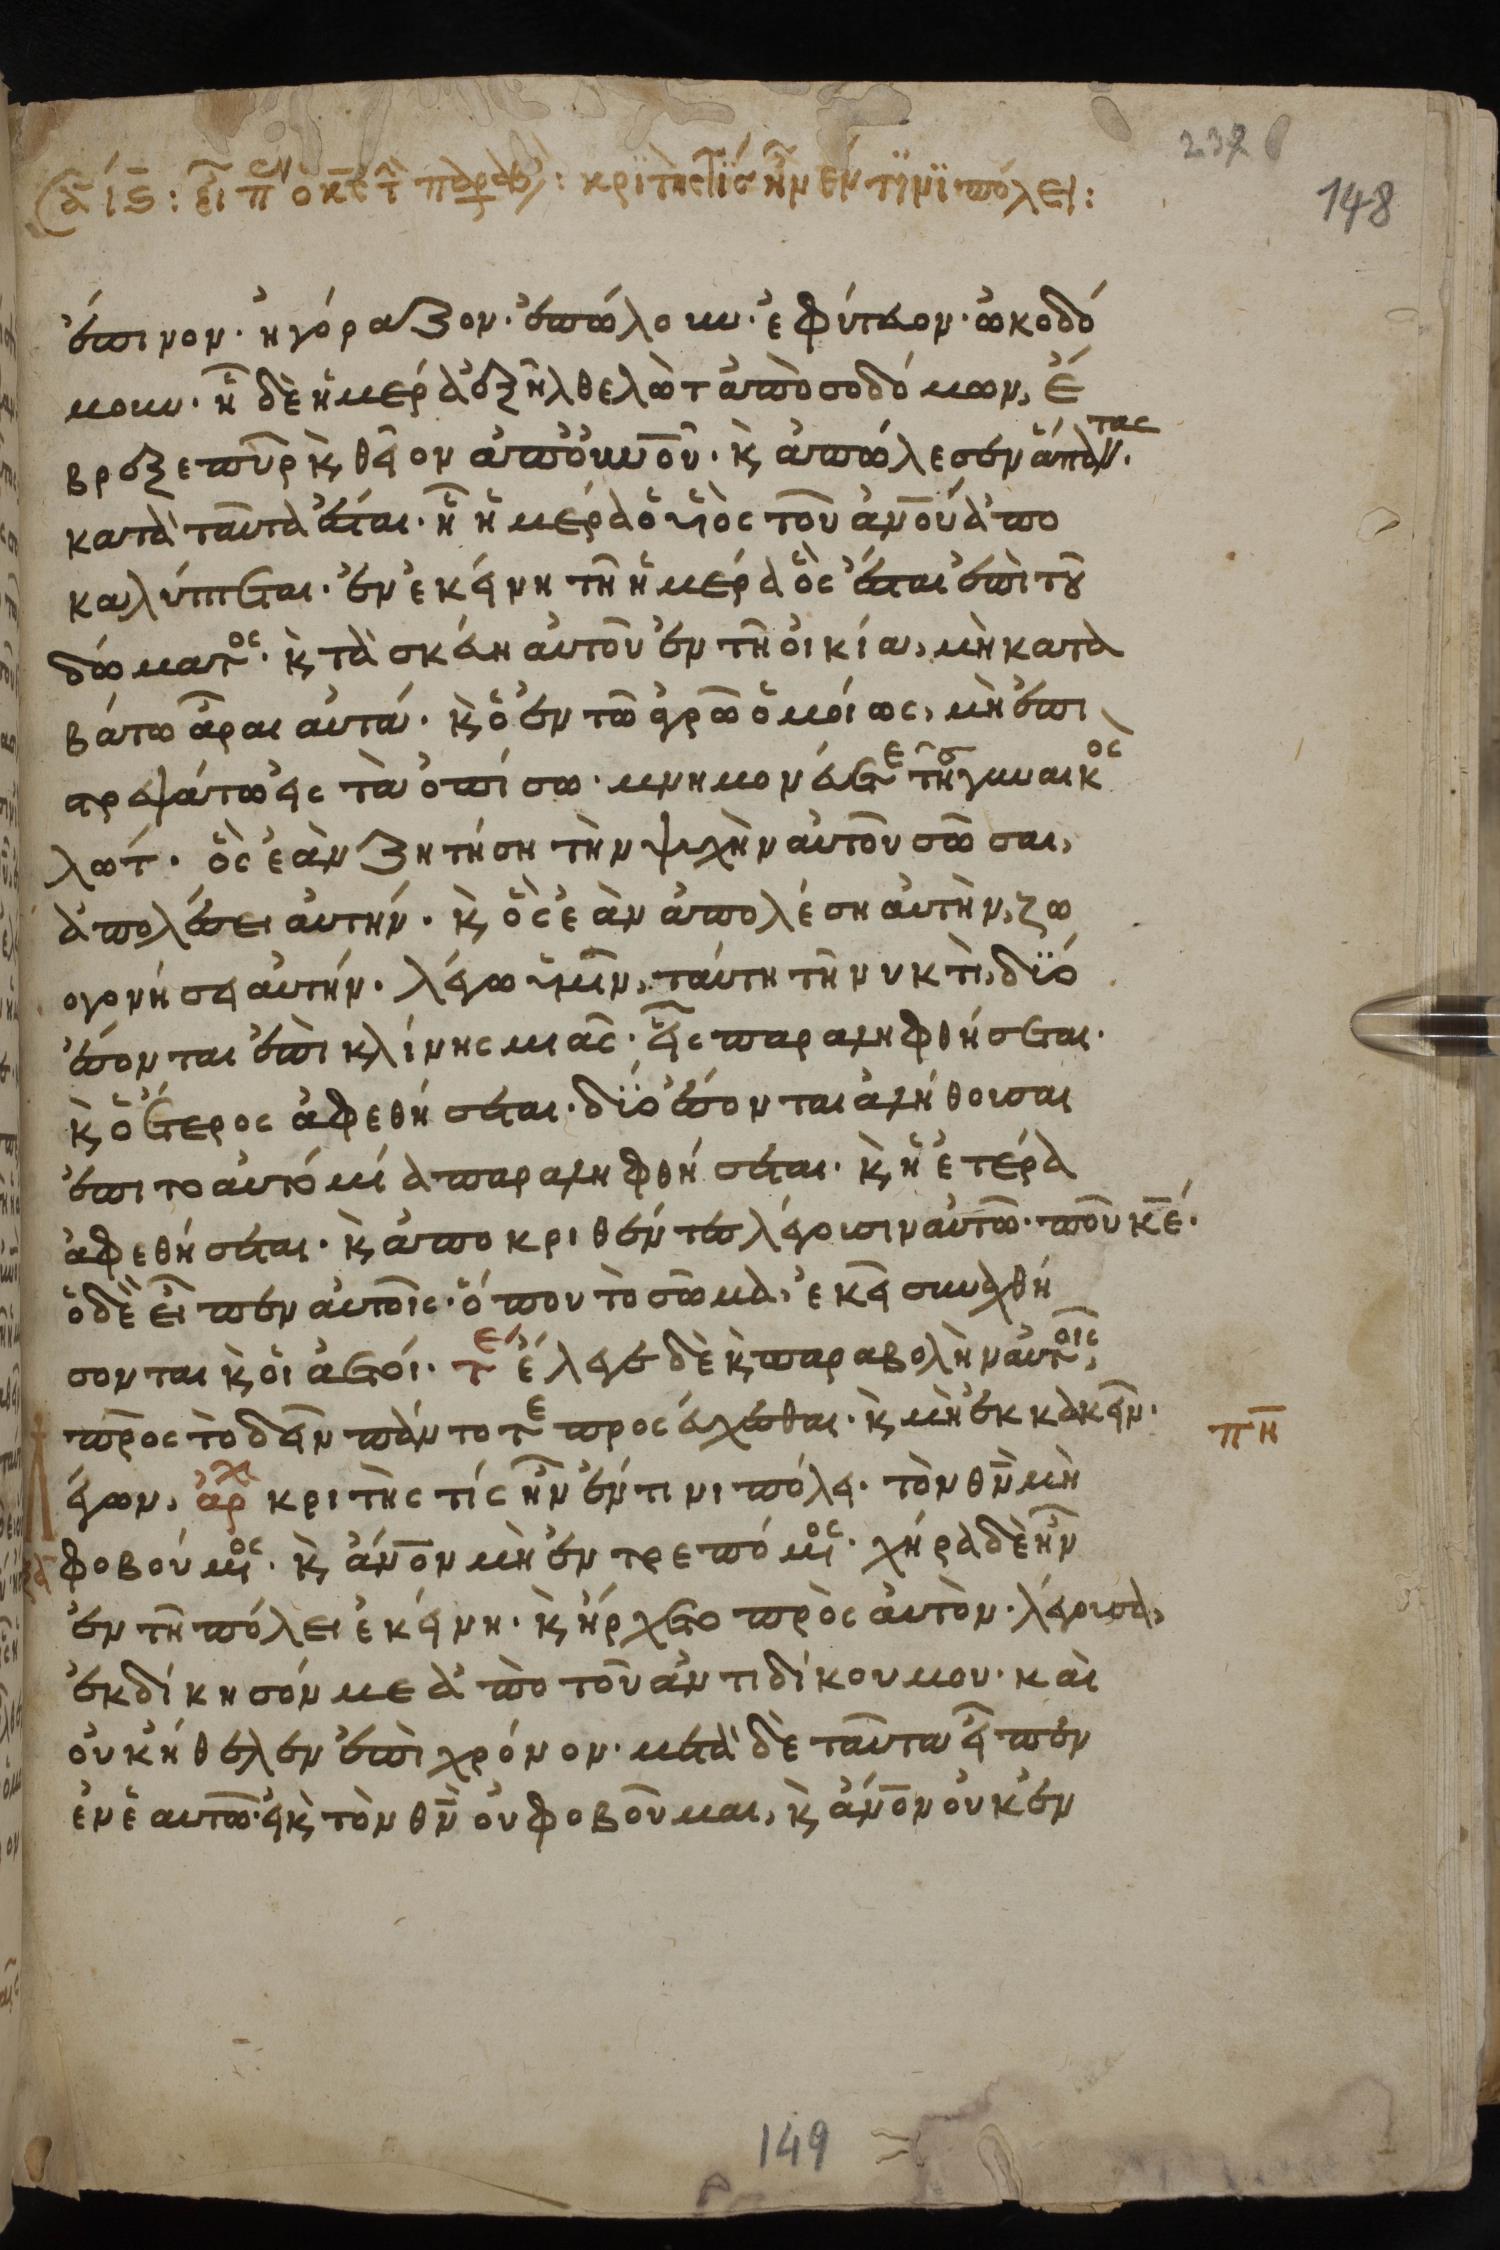 237 6
148
Σα ιϛ : εἶπεν ὁ κς τ παραβ : κρϊτὴς τὶς ἦν ἔν τϊνϊ πόλει :
ἔπινον · ἠγόραζον · ἐπώλουν · ἐφύτευον · ὠκοδό
μουν · ἧ δὲ ἡμέρα ἐξῆλθε λὼτ ἀπὸ σοδόμων, ἔ
βρεξε πῦρ κ θεῖον ἀπὸ οὐνοῦ · κ ἀπώλεσεν ἅπαντας ·
κατὰ ταῦτα ἔσται · ἧ ἡμέρα ὁ υἱὸς τοῦ ἀνου ἀπο
καλύπτεται · ἐν ἐκείνη τῆ ἡμέρα ὃς ἔσται ἐπὶ τοῦ
δώματος · κ τὰ σκεύη αὐτοῦ ἐν τῆ οἰκία, μὴ κατα
βάτω ἆραι αὐτά · κ ὁ ἐν τῶ ἀγρῶ ὁμοίως, μὴ ἐπι
στρεψάτω εἰς τὰ ὀπίσω · μνημονεύετε τῆς γυναικὸς
λώτ · ὃς ἐὰν ζητήση τὴν ψυχὴν αὐτοῦ σῶσαι,
ἀπολέσει αὐτήν · κ ὃς ἐὰν ἀπολέση αὐτὴν, ζω
ογονήσει αὐτήν · λέγω ὑμῖν, ταύτη τῆ νυκτὶ, δϊό
ἔσονται ἐπὶ κλίνης μιᾶς · εἷς παραληφθήσεται ·
κ ὁ ἕτερος ἀφεθήσεται · δϊό ἔσονται ἀλήθουσαι
ἐπι το αυτό μία παραληφθήσεται · κ ἡ ἑτέρα
ἀφεθήσεται · κ ἀποκριθέντες λέγουσιν αὐτῶ · ποῦ κε ·
ὁ δὲ εἶπεν αὐτοῖς · ὅπου τὸ σῶμα, ἐκεῖ συναχθή
σονται κ οἱ ἀετοί · τε ἔλεγε δὲ κ παραβολὴν αὐτοῖς,
πρὸς τὸ δεῖν πάντοτε προσεύχεσθαι · κ μὴ ἐκκακεῖν ·
πη
λέγων, ἀρχ κριτὴς τίς ἦν ἔν τινι πόλει · τὸν θν μὴ
φοβούμενος · κ ἀνον μὴ ἐντρεπόμενος · χήρα δὲ ἦν
ἐν τῆ πόλει ἐκείνη · κ ἤρχετο πρὸς αὐτὸν · λέγουσα,
ἐκδίκησόν με ἀπὸ τοῦ ἀντιδίκου μου · καὶ
οὐκ ἠθέλεν ἐπὶ χρόνον · μετὰ δὲ ταῦτα εἶπεν
ἐν ἑαυτῶ · εἰ κ τὸν θν οὐ φοβοῦμαι, κ ἀνον οὐκ ἐν
149